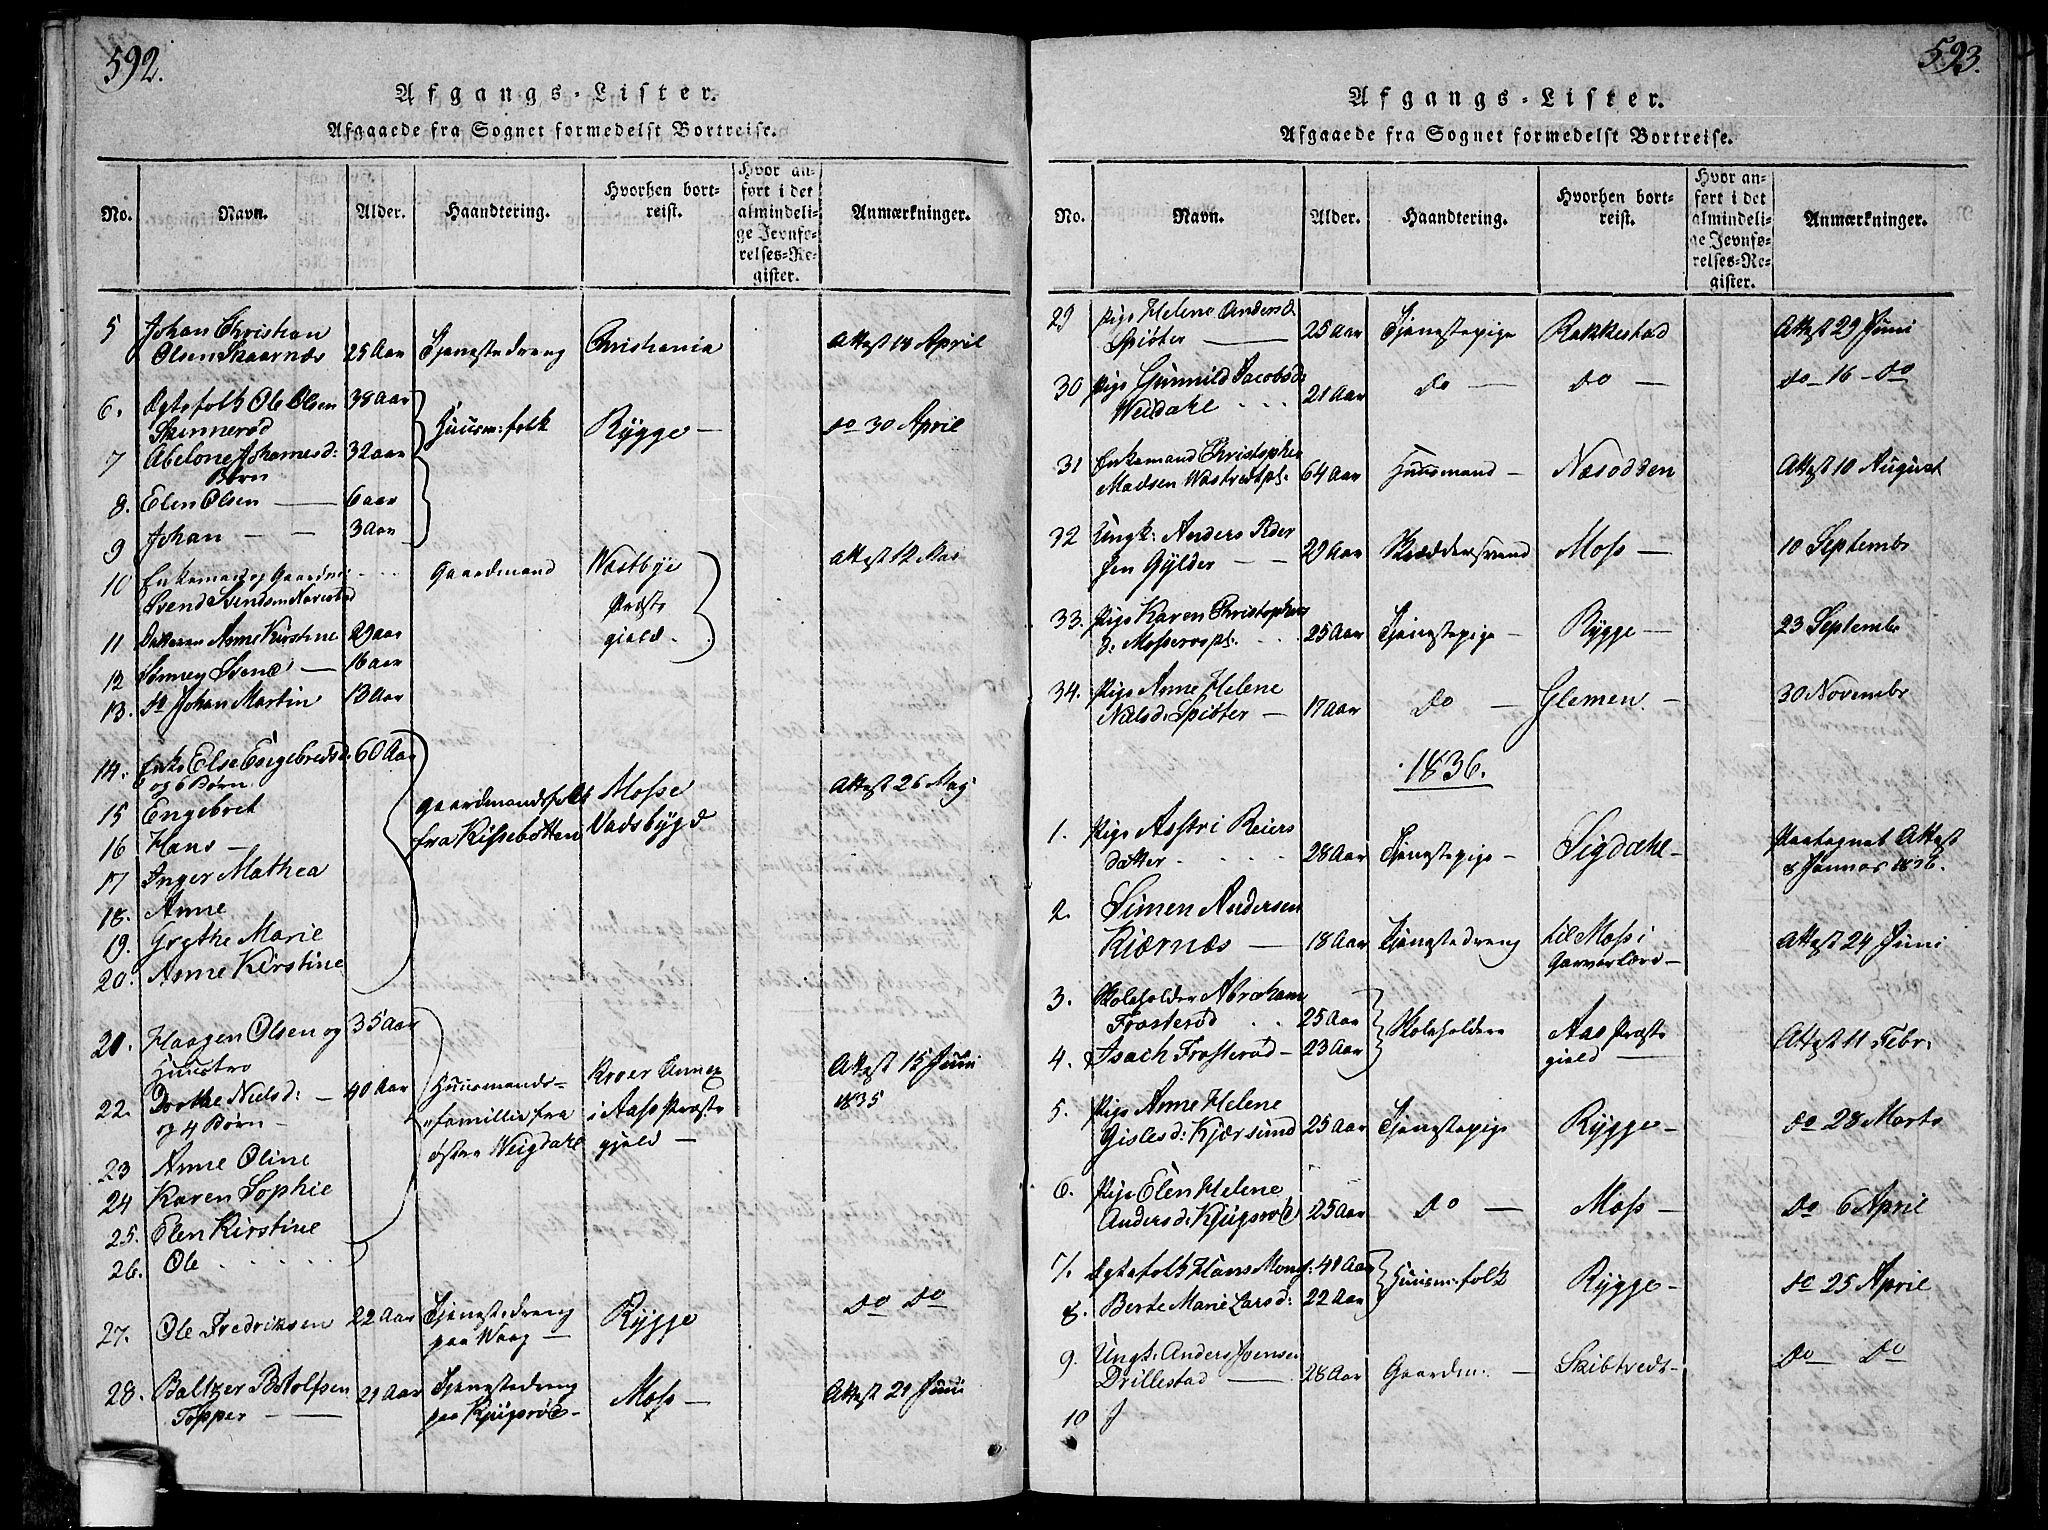 592.
Afgangs-Lister.
Afgaaede fra Sognet formedelst Bortreise.
No. Navn. Alder. Haandtering. Hvorhen bortreist. Hvor anført i det almindelige Jevnførelses-Register. Anmærkninger.
5 Johan Christian
Olsen Skaarnæs 25 Aar Tjenestedreng Christiania Attest 14 April
6. Ægtefolk Ole Olsen 38 aar
Skinnerød Huusm: folk Rygge — do 30 April
7 Abelone Johannesd: 32 aar
Børn
8. Elen Olsen — 6 aar
9 Johan — — 3 Aar
10 Enkemand og Gaardm:
Svend Svendsen Gaardmand Vestbye Attest 12
Præste
gield.
11 Datteren Anne Kirstine 29 aar
12 Sønnen Svend — 16 aar
13. do Johan Martin 13 Aar
14. Enke Else Engebretsd. 60 Aar
og 6 Børn. Gaardmandsfolk Mosse Attest 26 May
15 Engebret fra Kissebotten Vadsbygd
16 Hans —
17 Inger Mathea
18. Anne
19. Grethe Marie
20. Anne Kirstine
21. Haagen Olsen og 35 Aar
Huustro
22. Dorthe Nielsd: — 40 Aar Huusmands- Kroer Annex Attest 15 Juni
og 4 Børn — familie fra i Aass Præste 1835
østre Veigdahl gjeld —
23 Anne Oline
24 Karen Sophie
25. Elen Kirstine
26. Ole . . . . . .
27. Ole Fredriksen 22 Aar Tjenestedreng Rygge do do
paa Waag —
28. Baltzer B. Rolfsen 21 Aar Tjenestedreng Moss — Attest 29 Juni
Topper — paa Kjugsrød —
593.
Afgangs-Lister.
Afgaaede fra Sognet formedelst Bortreise.
No. Navn. Alder. Haandtering. Hvorhen bortreist. Hvor anført i det almindelige Jevnførelses-Register. Anmærkninger.
29 Pige Helene Andersd.
Spiøter — 25 Aar Tjenestepige Rakkestad Attest 29 Juni
30 Pige Gunnild Jacobsd.
Veidahl . . . 21 Aar do — do — do — 16 — do
31 Enkemand Christopher
Madsen 64 Aar Huusmand — Næsodden Attest 10 August
32 Ungk: Anders Peder
sen Gylder — — 29 Aar Skræddersvend Moss — 10 Septembr
33. Pige Karen Christophers
d: Mosserospl. . . 25 Aar Tjenestepige — Rygge — 23 Septembr
34. Pige Anne Helene
Nielsd. Spiøter — 17 Aar do — Glemen. — 30 Novembr
1836.
1. Pige Aastri Reiers
datter . . . . 28 Aar Tjenestepige — Sigdahl — Paategnet Attest
8 Januar 1836.
2. Simen Andersen
Kiærnæs — 18 Aar Tjenestedreng til Moss i Attest 24 Juni
Garverlære —
3. Skoleholder Abraham
Frosterød . . 25 Aar Skoleholdere Aas Præste Attest 11 Febr.
4. Isach Frosterød — 23 Aar gield —
5. Pige Anne Helene
Gislesd: Kjærsund 25 Aar Tjenestepige Rygge — do 28 Marts
6. Pige Elen Helene
Andersd. Kjugsrød 25 Aar do — Moss — do 6 April
7. Ægtefolk Hans Mons: 41 Aar Huusm: folk Rygge — do 25 April
8. Berte Marie Larsd: 22 Aar
9. Ungk: Anders Joensen
Drillestad — 28 Aar Gaardm: — Skibtvedt — do do
10